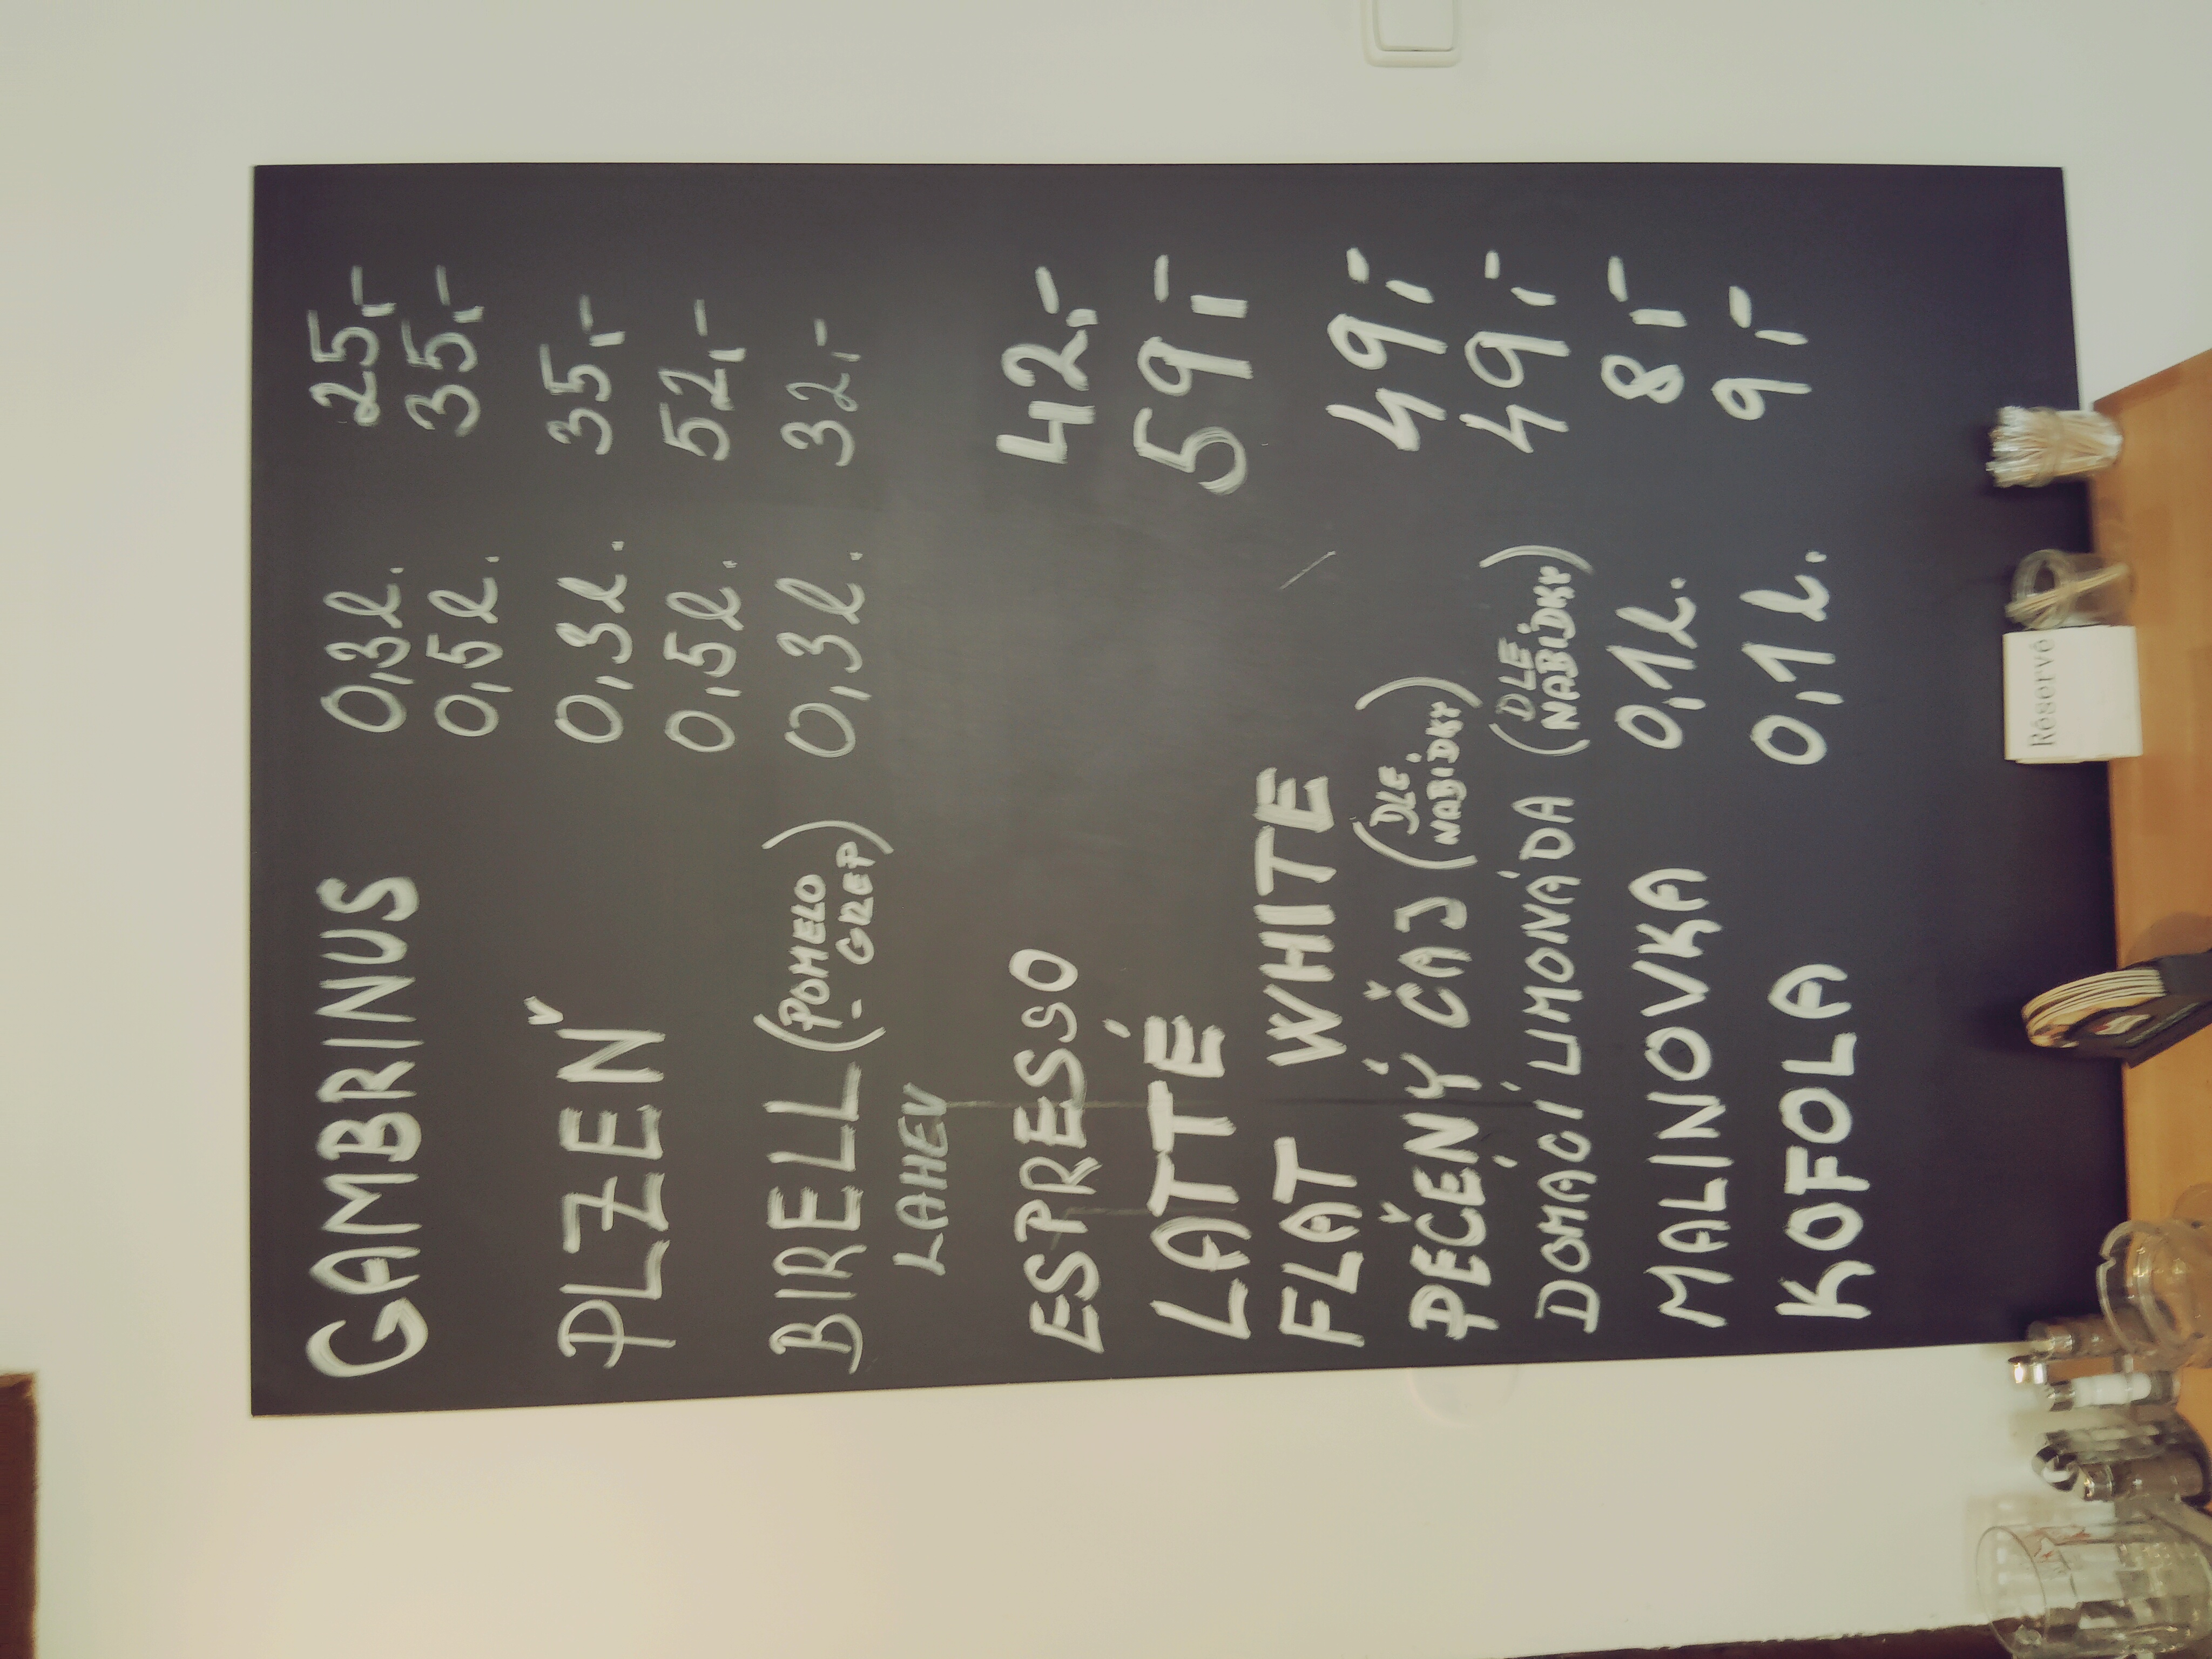 GAMBRINUS 0,3l. 25,-
0,5l. 35,-
PLZEŇ 0,3l. 35,-
0,5l. 52,-
BIRELL (POMELO - GREP) 0,3l. 32,-
LAHEV
ESPRESSO 42,-
LATTÉ 59,-
FLAT WHITE
PEČENÝ ČAJ (DLE NABÍDKY) 49,-
DOMÁCÍ LIMONÁDA (DLE NABÍDKY) 49,-
MALINOVKA 0,1l. 8,-
KOFOLA 0,1l. 9,-
Réservé